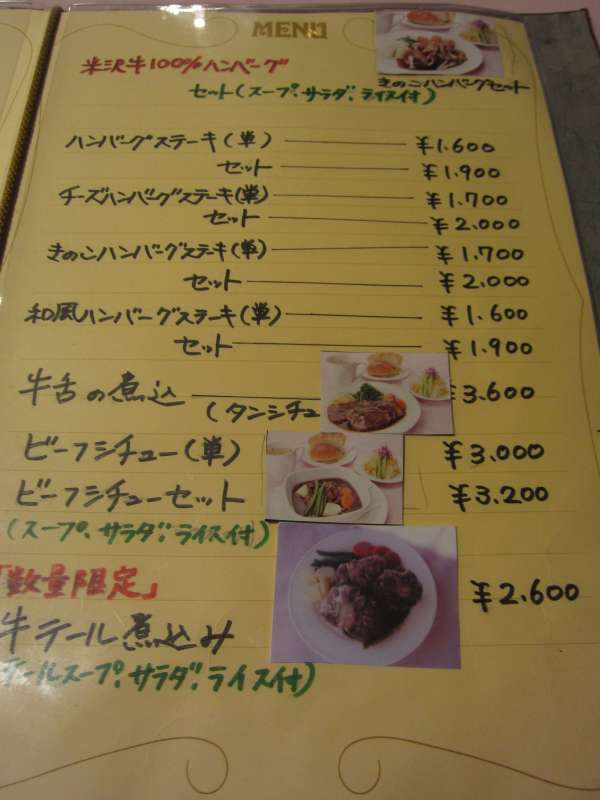 MENU
米沢牛100%ハンバーグ
きのこハンバーグセット
セット(スープ、サラダ、ライス付)
ハンバーグステーキ(単) ¥1.600
セット ¥1.900
チーズハンバーグステーキ(単) ¥1.700
セット ¥2.000
きのこハンバーグステーキ(単) ¥1.700
セット ¥2.000
和風ハンバーグステーキ(単) ¥1.600
セット ¥1.900
牛舌の煮込 ¥3.600
(タンシチュ
ビーフシチュー(単) ¥3.000
ビーフシチューセット ¥3.200
(スープ、サラダ、ライス付)
「数量限定」
¥2.600
牛テール煮込み
テールスープ、サラダ、ライス付)